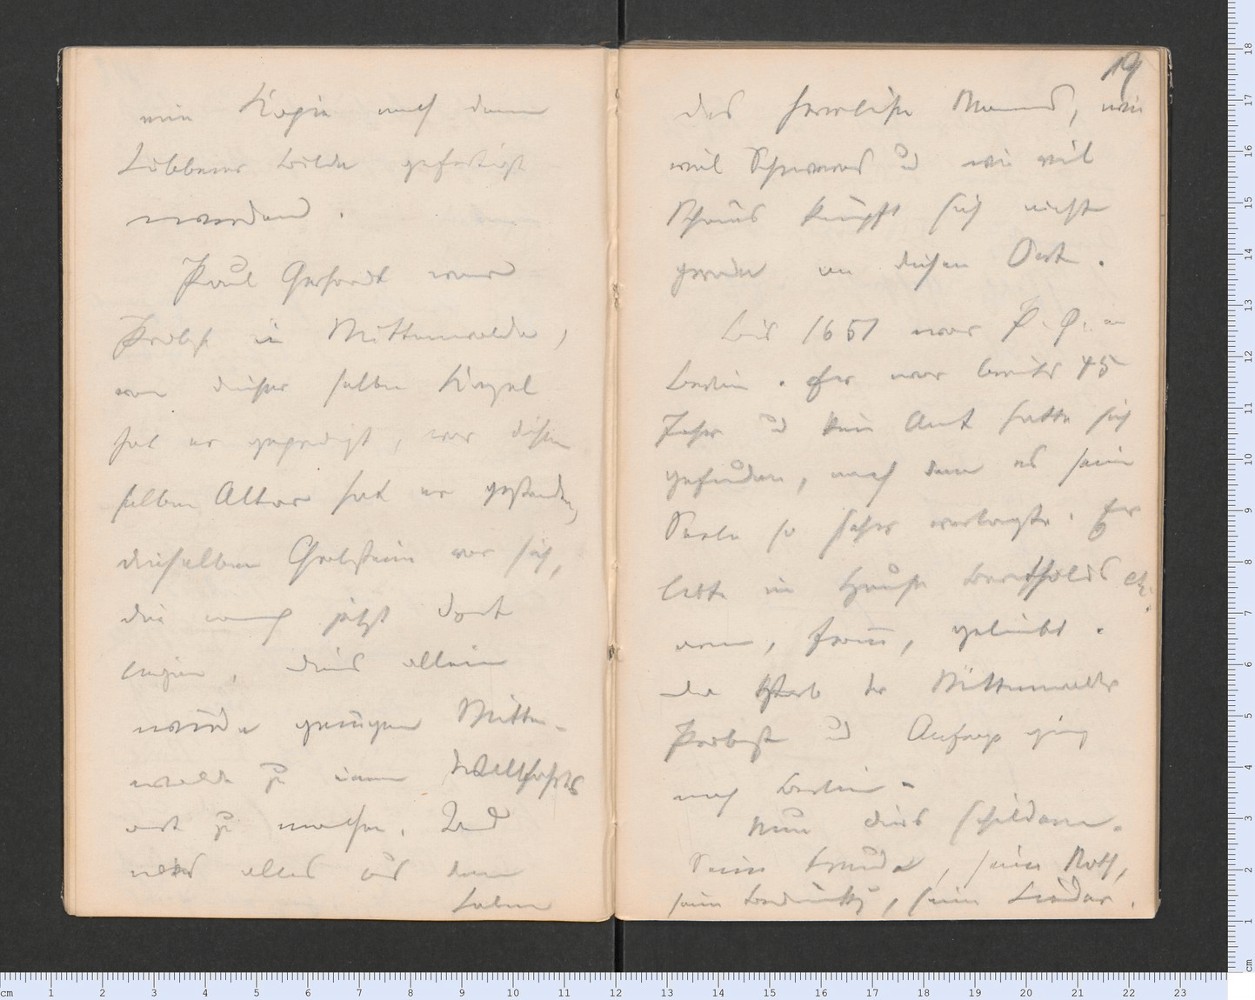 eine Kopie nach dem
Lübbener Bilde gefertigt
worden.
Paul Gerhardt war
Probst in Mittenwalde,
von dieser selben Kanzel
hat er gepredigt, vor diesem
selben Altar hat er gestanden,
dieselben Grabsteine vor sich,
die noch jetzt dort
liegen, dies allein
würde genügen Mitten-
walde zu einem Wallfahrts
ort zu machen. Und
alles aus dem
Leben
19
des herrlichen Mannes, wie
viel Schweres u wie viel
Schönes knüpft sich nicht
gerade an diesen Ort.
Bis 1651 war P. G. in
Berlin. Er war bereits 45
Jahr u kein Amt hatte sich
gefunden, nach dem es seine
Seele so sehr verlangte. Er
lebte im Hause Bertholds etc.
arm, fromm, geliebt.
Da starb der Mittenwalder
Probst u Anfrage ging
nach Berlin.
Nun dies schildern.
Seine Freude, seine Noth,
seine, seine Lieder.